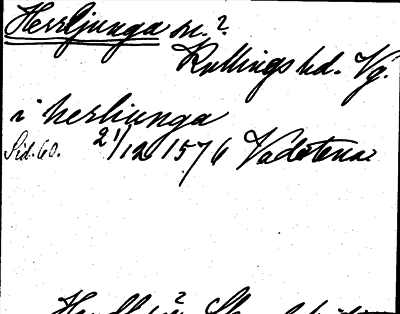 Herrljunga sn.?
Kullings hd. Vg.
i herliunga
Sid. 60. 21/12 1576 Vadstena